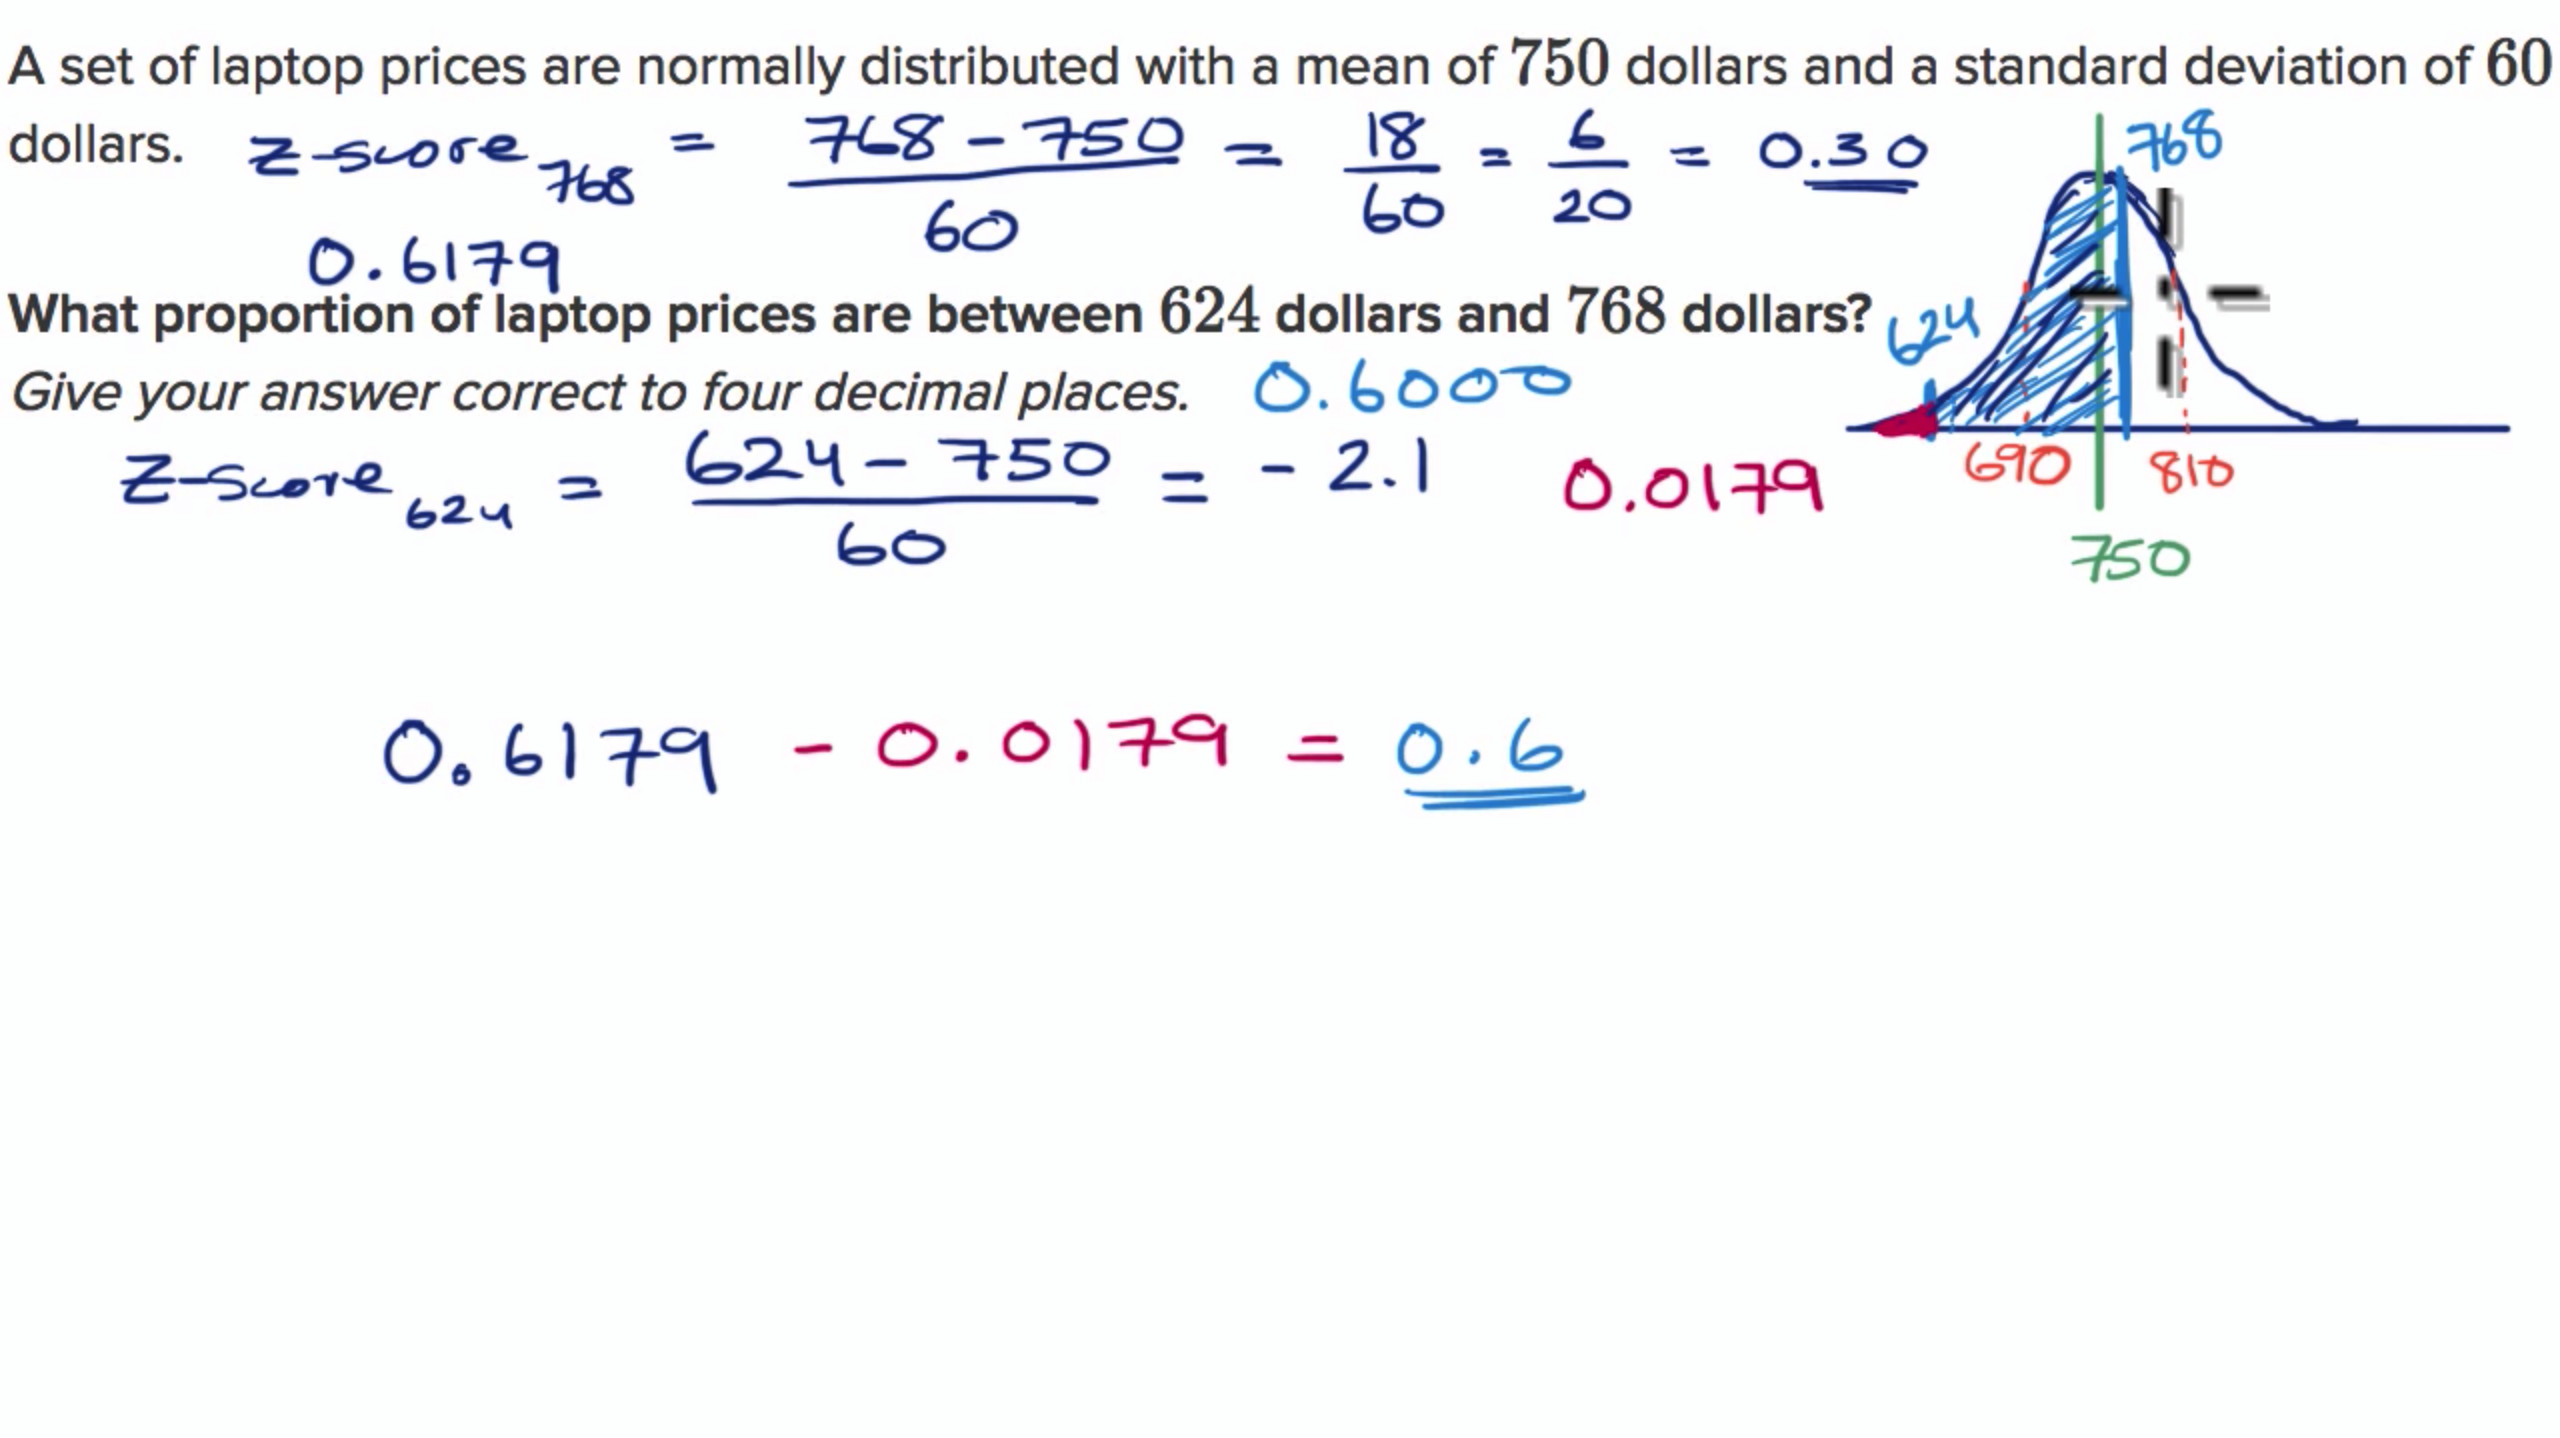 A set of laptop prices are normally distributed with a mean of 750 dollars and a standard deviation of 60
dollars. z-score 768 = 768 - 750 / 60 = 18/60 = 6/20 = 0.30
768
0.6179
What proportion of laptop prices are between 624 dollars and 768 dollars?
624
Give your answer correct to four decimal places. 0.6000
z-score 624 = 624 - 750 / 60 = -2.1 0.0179
690 810
750
0.6179 - 0.0179 = 0.6